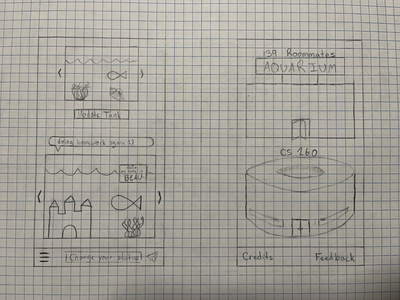 Update Tank
doing homework again :)
BEAU
Change your status!
39 Roommates
AQUARIUM
CS 160
Credits
Feedback